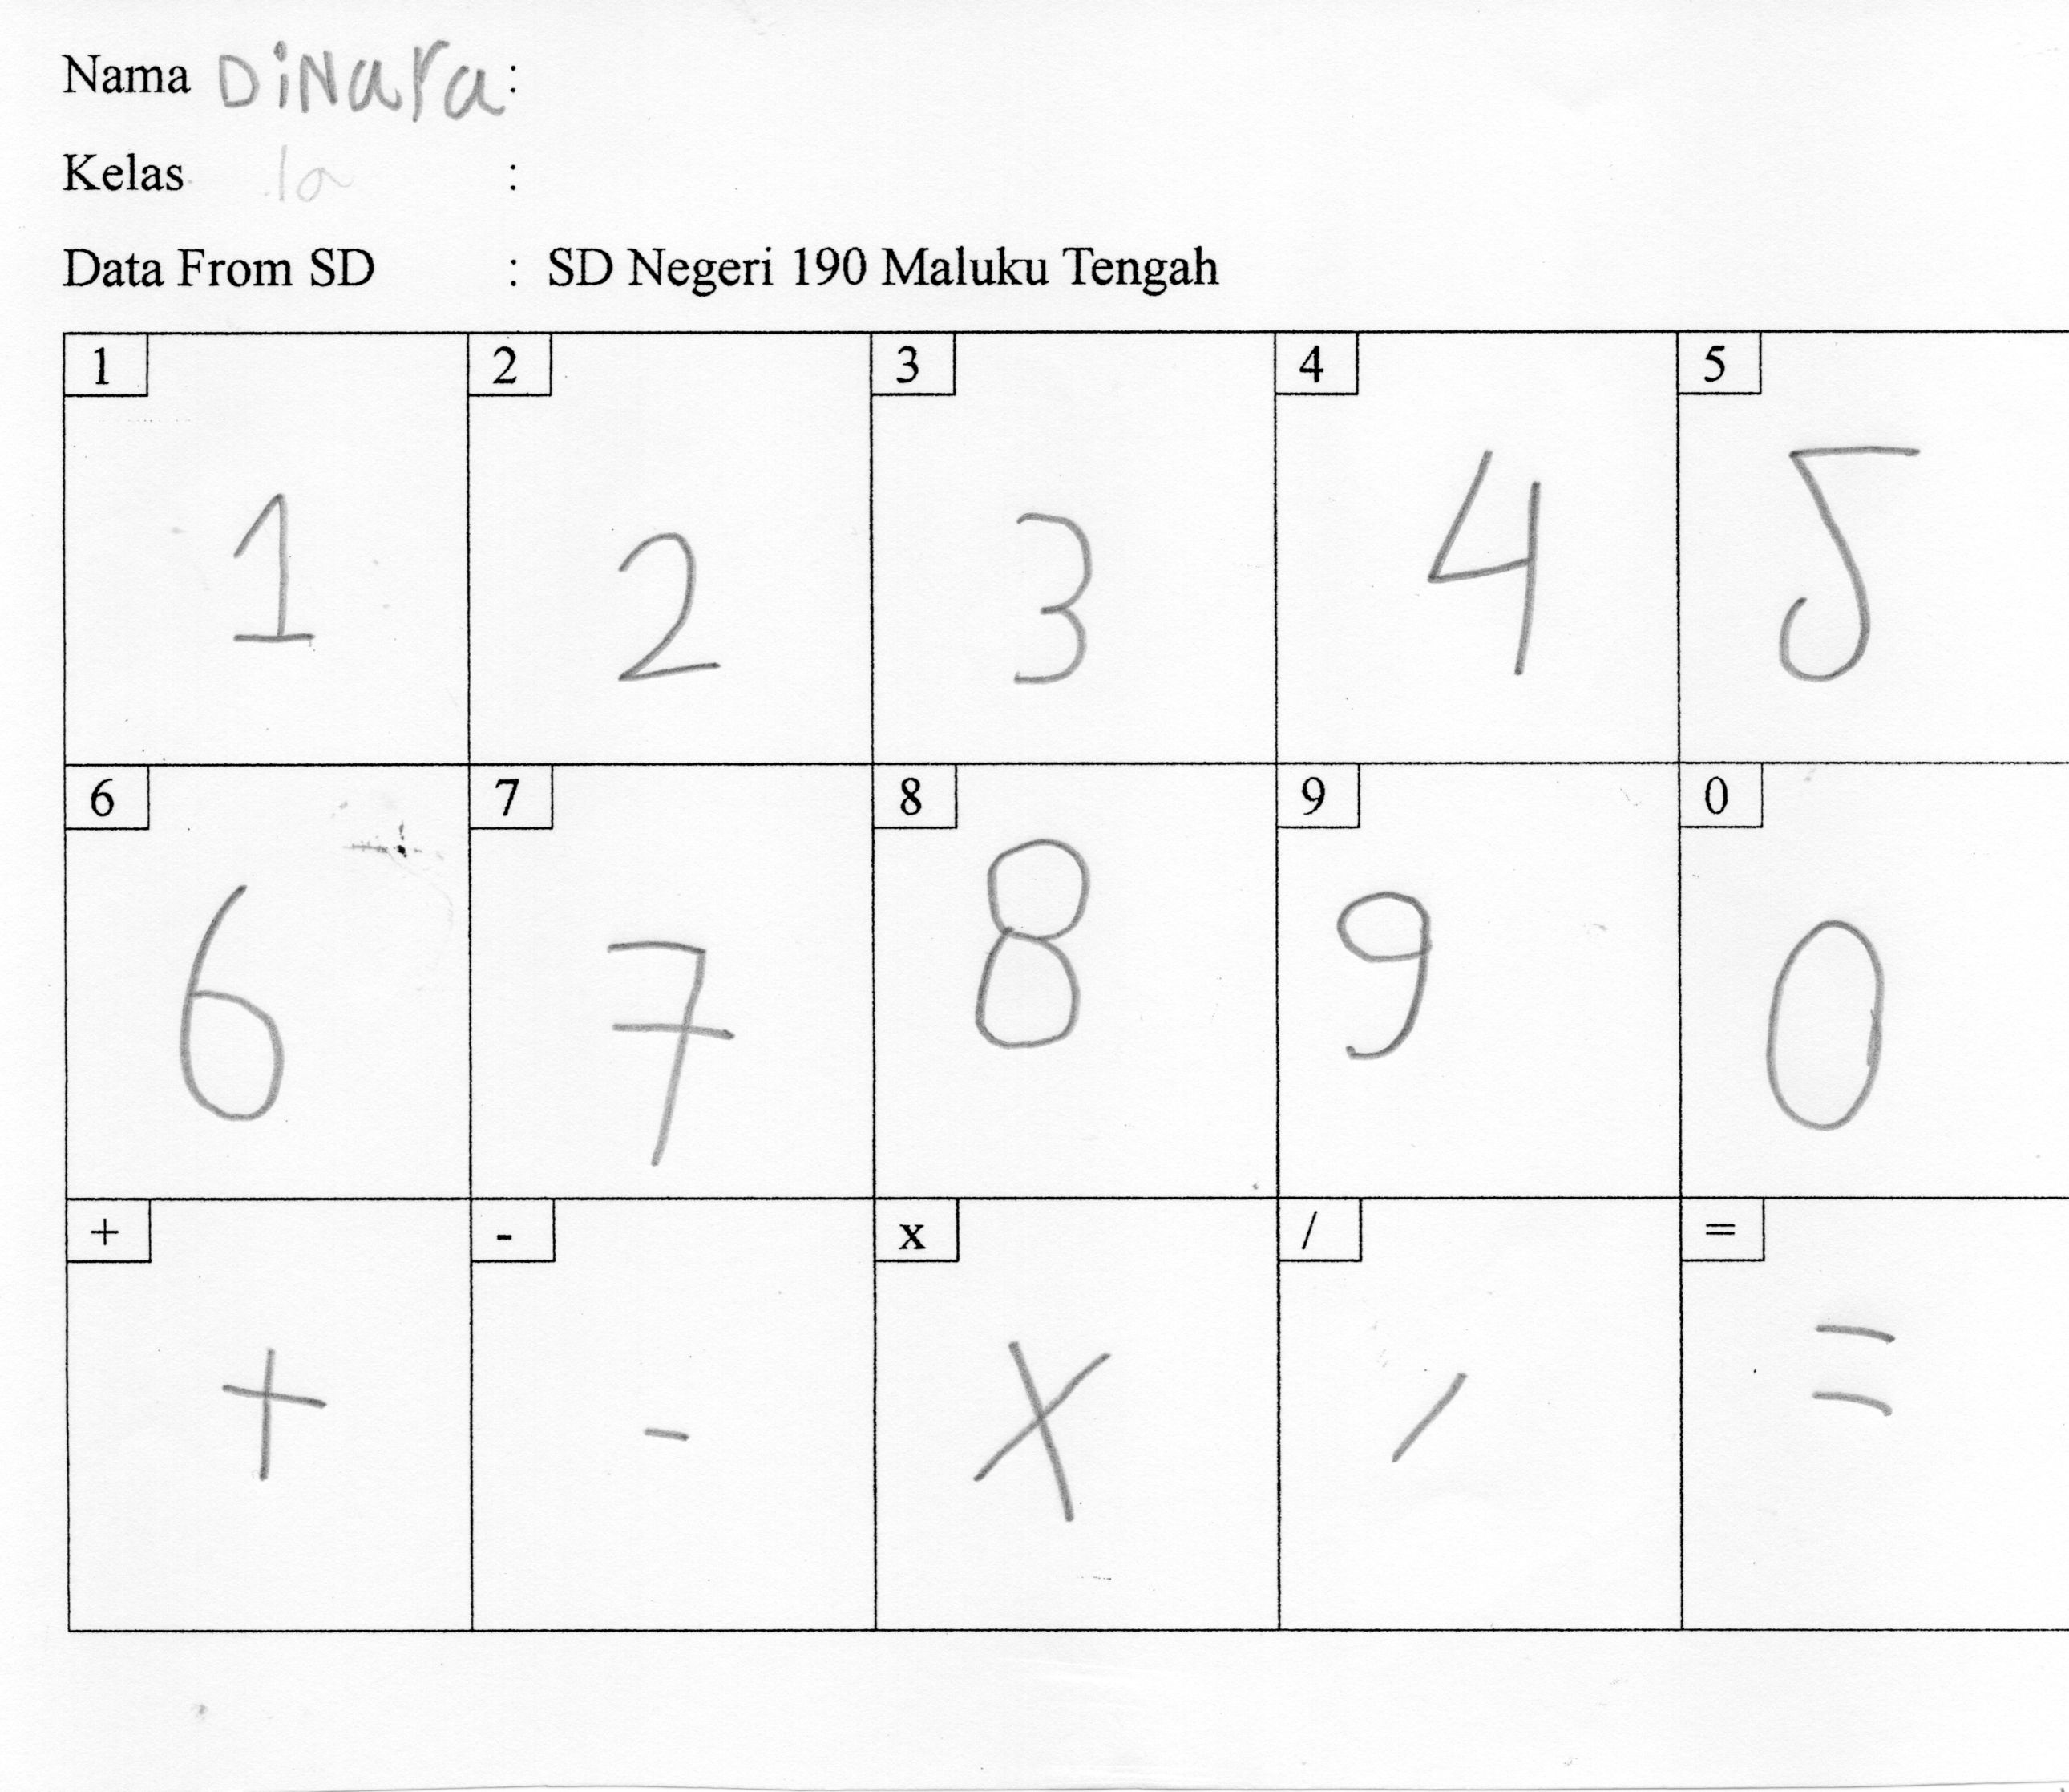 Nama DiNara:
Kelas 1a :
Data From SD : SD Negeri 190 Maluku Tengah
1 2 3 4 5
1 2 3 4 5
6 7 8 9 0
6 7 8 9 0
+ - x / =
+ - x / =